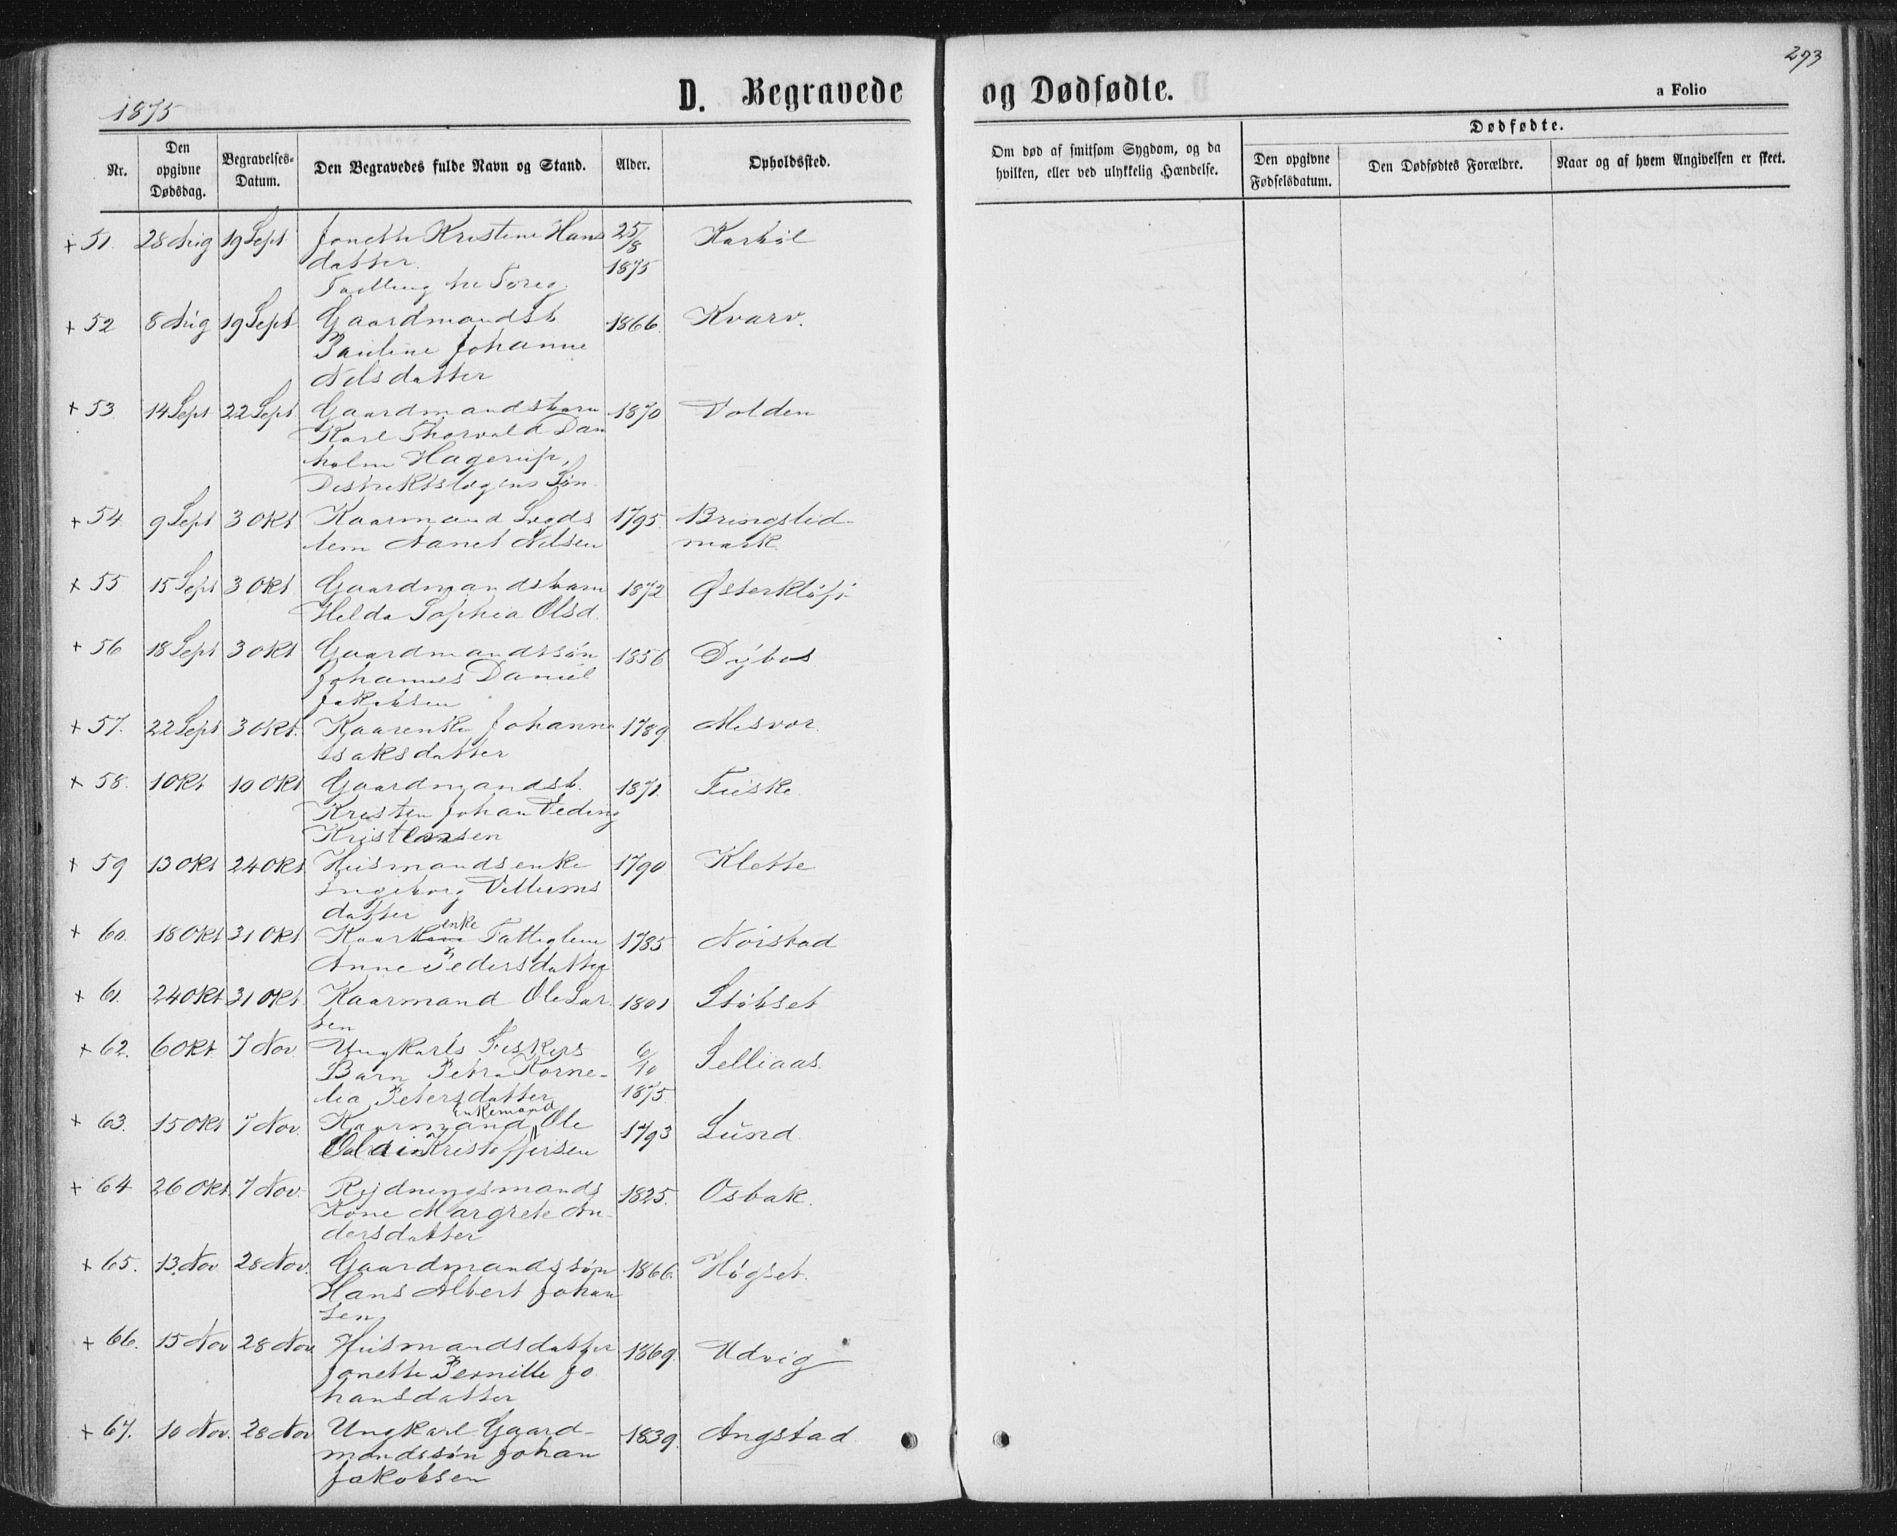 293
1875
D. Begravede og Dødfødte.
a Folio
Nr.
Den opgivne Dødsdag.
Begravelses-Datum.
Den Begravedes fulde Navn og Stand.
Alder.
Opholdssted.
Om død af smitsom Sygdom, og da
hvilken, eller ved ulykkelig Hændelse.
Dødfødte.
Den opgivne Fødselsdatum.
Den Dødfødtes Forældre.
Naar og af hvem Angivelsen er skeet.
+ 51. 28 Aug 19 Sept Jonette Kristine Hans 25/8 1875 Karbøl
datter.
+ 52 8 Aug 19 Sept Gaardmandsb 1866. Kvarv.
Pauline Johanne
Nelsdatter
+ 53 14 Sept 22 Sept Gaardmandsbarn 1870 Volden
Karl Thorvald Dan
holm Hagerup,
Distriktslægens Søn
+ 54 9 Sept 3 Okt Kaarmand Lægds 1795. Bringslid-
lem Nanet Nilsen mark
+ 55 15 Sept 3 Okt Gaardmandsbarn 1872 Østerkløft
Helda Sophia Olsd.
+ 56 18 Sept 3 Okt Gaardmandssøn 1856 Dybos
Johannes Daniel
Jakobsen
+ 57. 22 Sept 3 Okt. Kaarenke Johanna 1789 Misvør.
Isaksdatter
+ 58. 1 Okt 10 Okt Gaardmandsb. 1871. Fuske
Kristen Johan Veding
Kristiansen
+ 59 13 Okt 24 Okt Husmandsenke 1790 Klette
Ingeborg Villums
datter
+ 60. 18 Okt 31 Okt Kaarkone enke Fattiglem 1785 Noistad
Anne Pedersdatter
+ 61. 24 Okt 31 Okt Kaarmand Ole Lar 1801 Støbset
sen
+ 62. 6 Okt. 7 Nov Ungkarls Fiskers 6/10 1875. Selliaas.
Barn Petra Korne-
lia Petersdatter
+ 63. 15 Okt 7 Nov. Kaarmand enkemand Ole 1793 Lund
Oldin Kristoffersen
+ 64 26 Okt. 7 Nov. Rydningsmands 1825. Osbak.
Kone Margrete An-
dersdatter
+ 65. 13 Nov 28 Nov. Gaardmandssøn 1866. Høgset.
Hans Albert Johan
sen
+ 66. 15 Nov 28 Nov Husmandsdatter 1869. Udvig
Jonette Pernille Jo
hansdatter
+ 67. 10 Nov. 28 Nov Ungkarl Gaard- 1839. Angstad
mandssøn Johan
Jakobsen